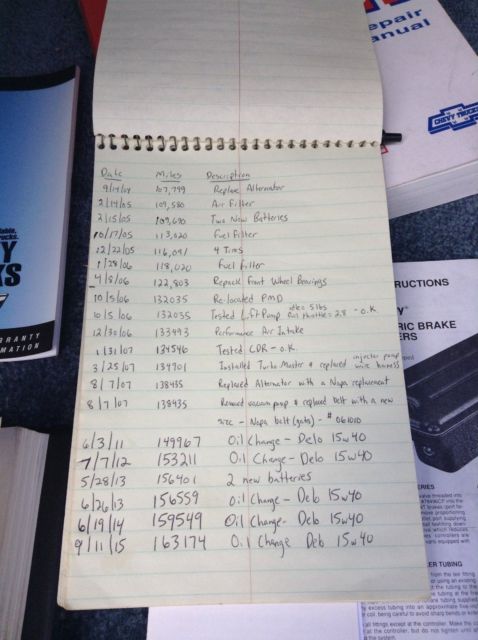 epair
anual
CHEVY TRUCKS
Date Miles Description
107,799 Replace Alternator
2/14/05 109,580 Air Filter
2/15/05 109,690 Two New Batteries
10/17/05 113,020 Fuel Filter
12/22/05 116,091 4 Tires
1/28/06 118,020 Fuel Filter
4/8/06 122,803 Repack Front Wheel Bearings
10/5/06 132035 Relocated PMD
10/5/06 132035 Tested Lift Pump idle = 5 lbs full throttle = 2.8 - O.K.
12/30/06 133493 Performance Air Intake
1/31/07 134546 Tested CDR - O.K.
3/25/07 134701 Installed Turbo Master & replaced injector pump wire harness
8/7/07 138435 Replaced Alternator with a Napa replacement
8/7/07 138435 Removed vacuum pump & replaced belt with a new
size - Napa belt (gates) - # 061010
6/3/11 149967 Oil Change - Delo 15w40
7/7/12 153211 Oil Change - Delo 15w40
5/28/13 156401 2 new batteries
6/26/13 156559 Oil Change - Delo 15w40
6/19/14 159549 Oil Change - Delo 15w40
9/11/15 163174 Oil Change Delo 15w40
Y
KS
RRANTY
MATION
RUCTIONS
RIC BRAKE
ERS
ERIES
ER TUBING